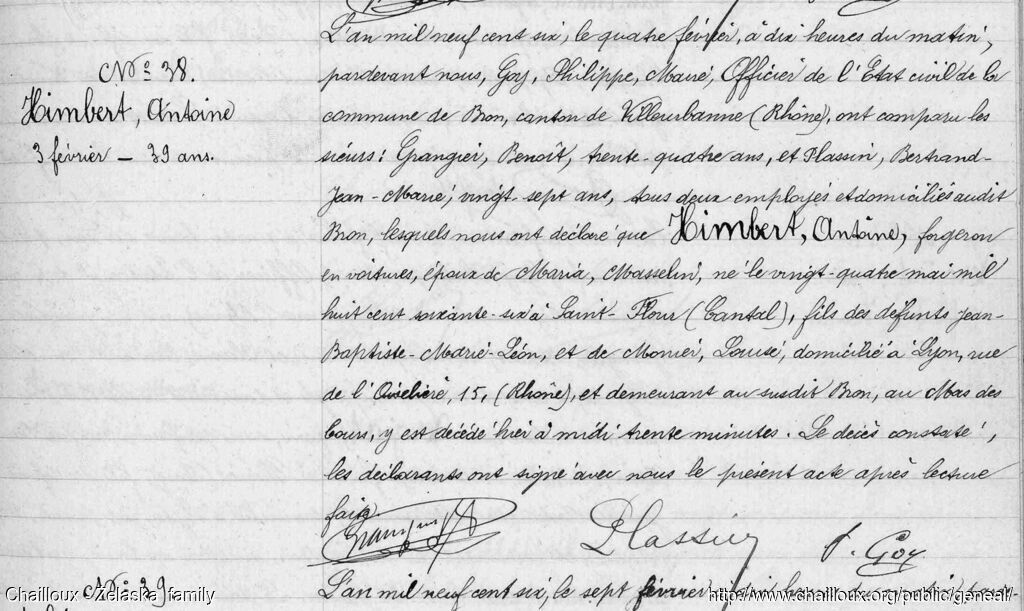 N° 38.
Himbert, Antoine
3 février – 39 ans.
L'an mil neuf cent six, le quatre février, à dix heures du matin,
pardevant nous, Goy, Philippe, Maire, Officier de l'Etat civil de la
commune de Bron, canton de Villeurbanne (Rhône), ont comparu les
sieurs: Grangier, Benoît, trente-quatre ans, et Plassin, Bertrand-
Jean-Marie, vingt-sept ans, tous deux employés et domiciliés audit
Bron, lesquels nous ont déclaré que Himbert, Antoine, forgeron
en voitures, époux de Maria, Masselin, né le vingt-quatre mai mil
huit cent soixante-six à Saint-Flour (Cantal), fils des défunts Jean-
Baptiste-Marie-Léon, et de Monier, Louise, domicilié à Lyon, rue
de l'Oiselière, 15, (Rhône), et demeurant au susdit Bron, au Mas des
Tours, y est décédé hier à midi trente minutes. Le décès constaté,
les déclarants ont signé avec nous le présent acte après lecture
faite.
Plassin P. Goy
N° 39
L'an mil neuf cent six, le sept février
Chailloux - Zelaska family
http://www.chailloux.org/public/geneal/